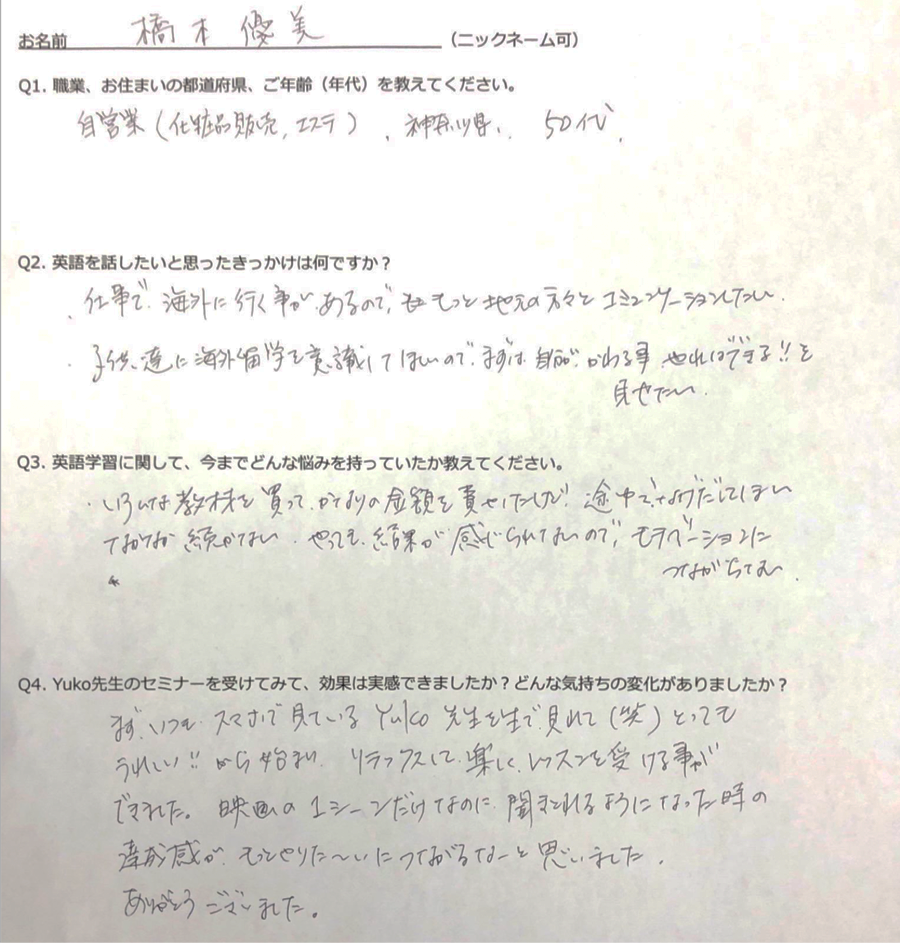 お名前 橋本 優美 （ニックネーム可）
Q1. 職業、お住まいの都道府県、ご年齢（年代）を教えてください。
自営業（化粧品販売、エステ）、神奈川県、50代
Q2. 英語を話したいと思ったきっかけは何ですか？
、仕事で、海外に行く事が、あるので、もっと地元の方々とコミュニケーションしたい。
・子供達に海外留学を意識してほしいので、まずは自分が、かわる事、やればできる!!を
見せたい。
Q3. 英語学習に関して、今までどんな悩みを持っていたか教えてください。
・いろんな教材を買って、かなりの金額を費やしたけど、途中でなげだしてしまい
なかなか続かない。やっても、結果が感じられないので、モチベーションに
つながらない。
Q4. Yuko先生のセミナーを受けてみて、効果は実感できましたか？どんな気持ちの変化がありましたか？
まず、いつも、スマホで見ている Yuko 先生を生で見れて（笑）とっても
うれしい!!から始まり、リラックスして、楽しく、レッスンを受ける事が
できました。映画の1シーンだけなのに、聞きとれるようになった時の
達成感が、もっとやりた〜いにつながるなーと思いました。
ありがとうございました。